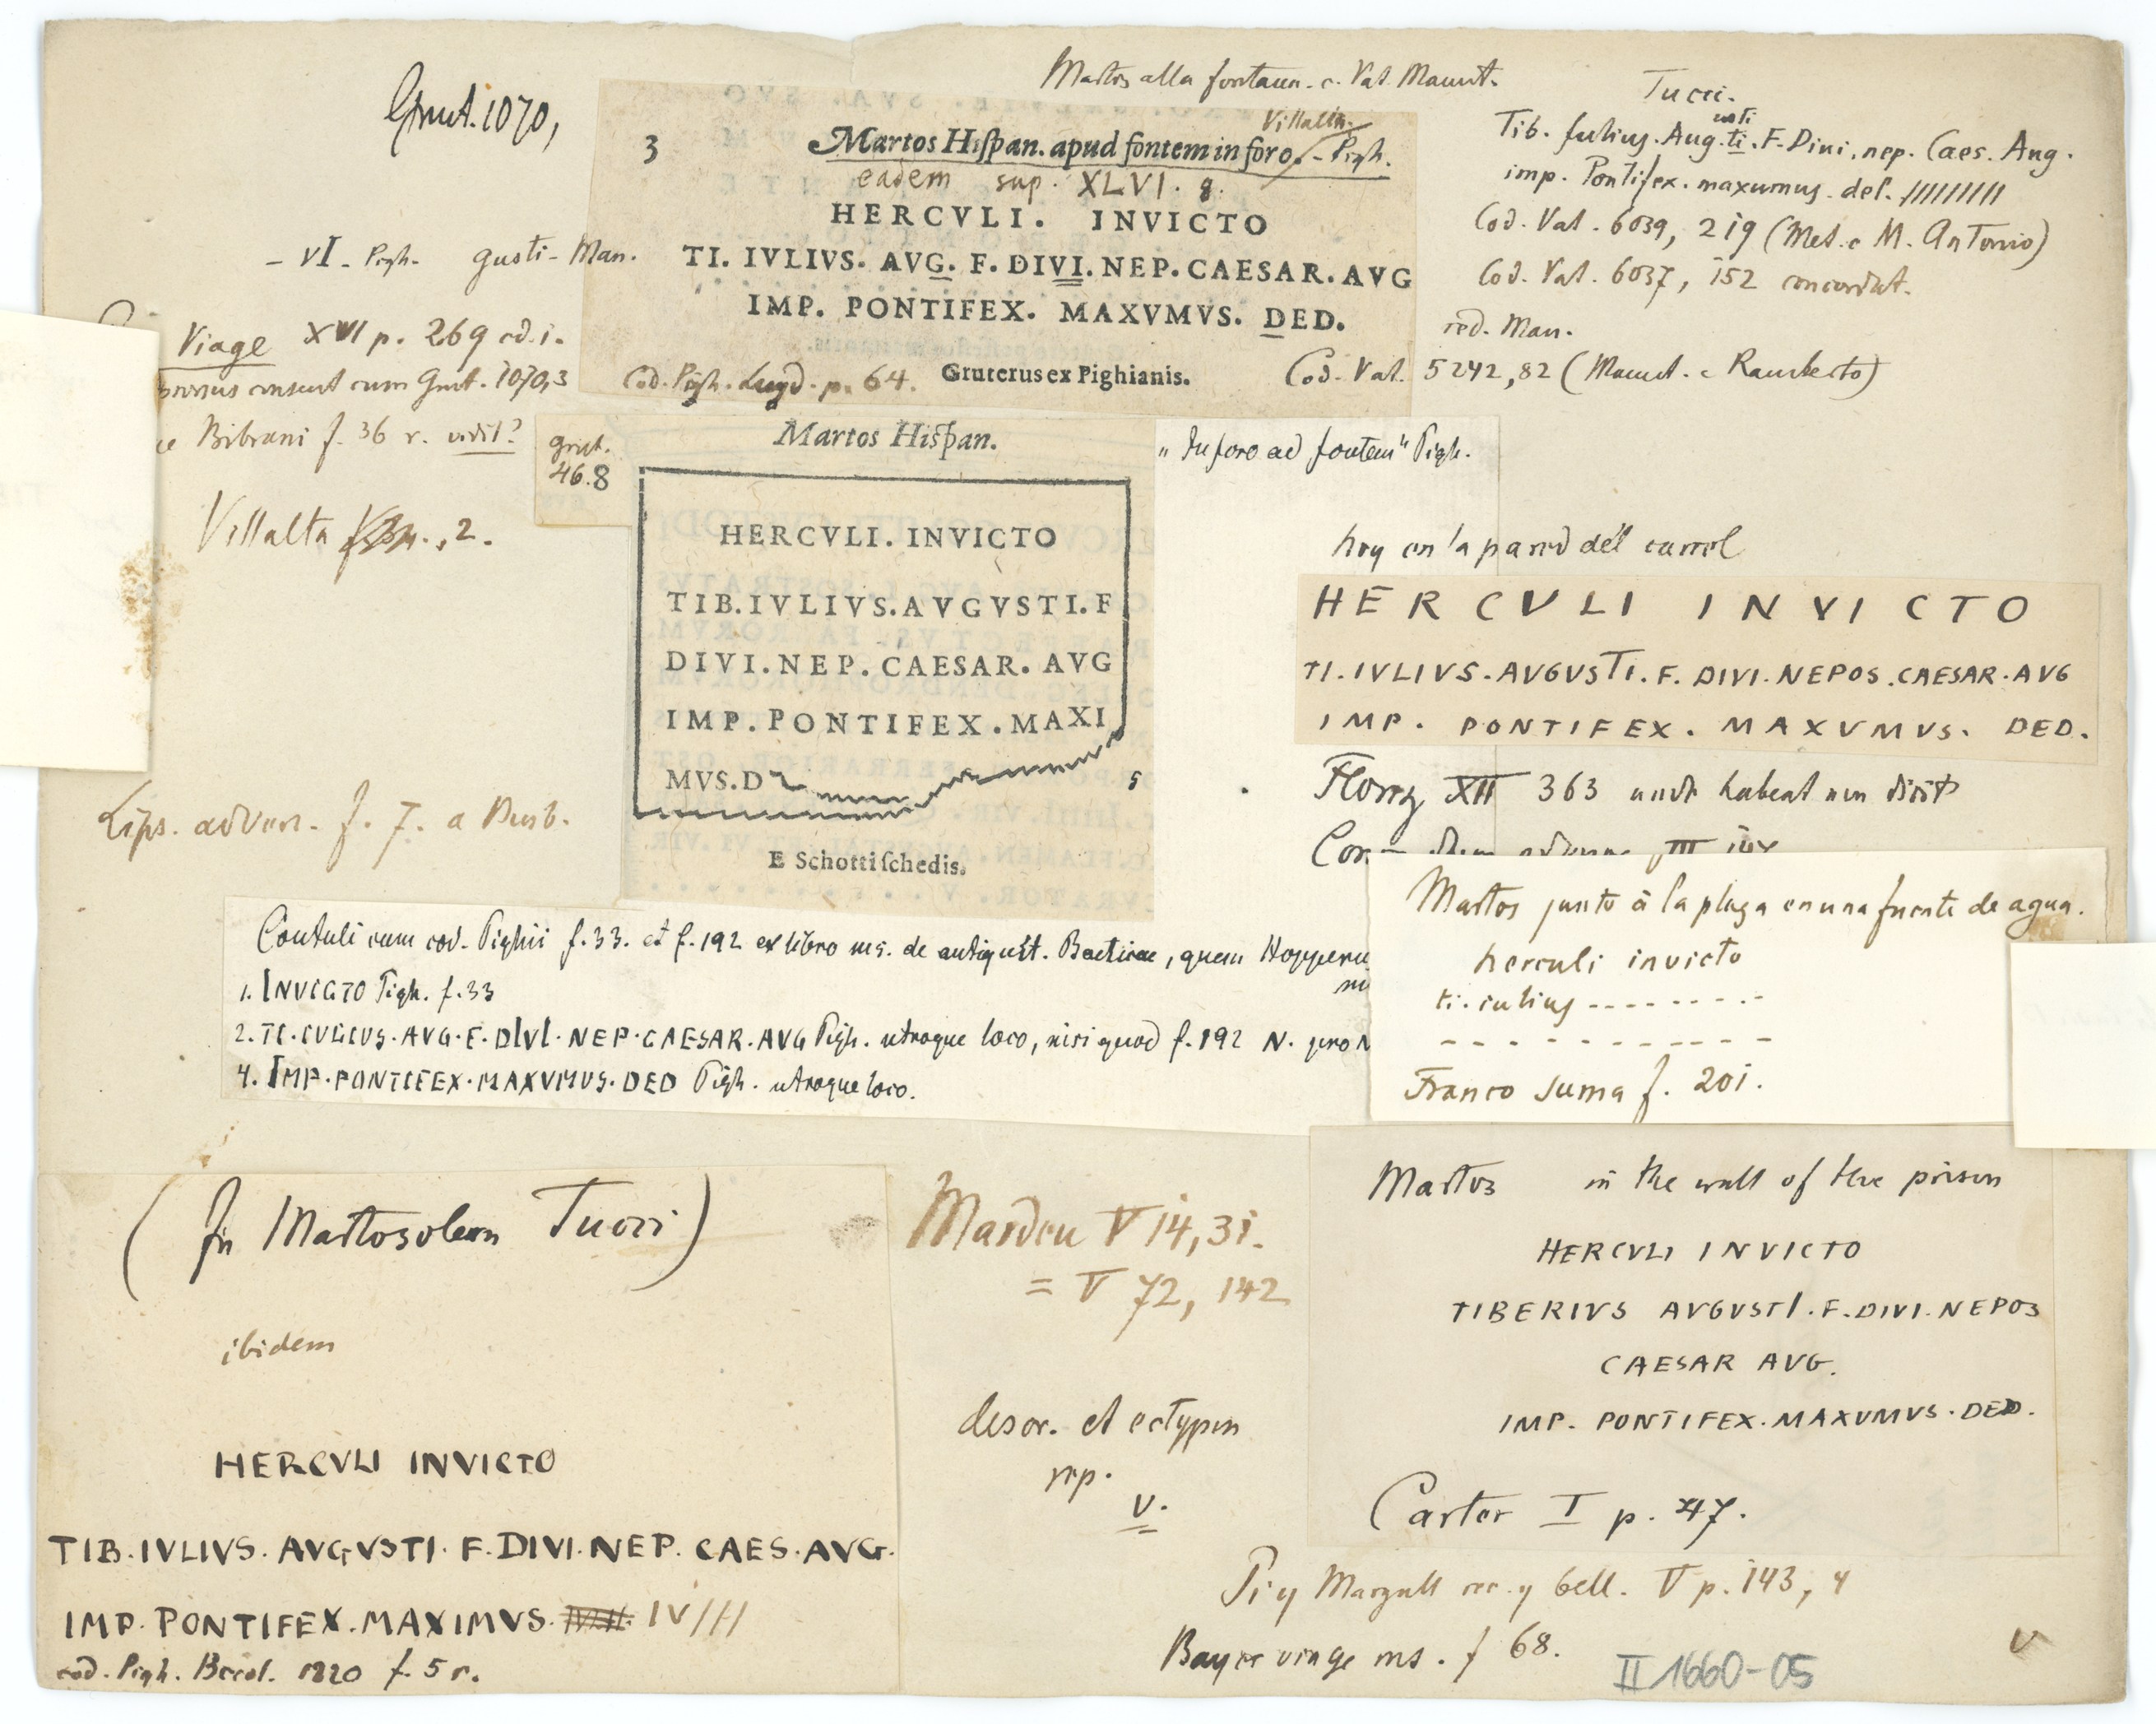 Grut. 1070,
Martos alla fontana. c. Vat. Manut.
3
Villalta.
Martos Hiſpan. apud fontem in foro. - Pigh.
eadem sup. XLVI. 8.
HERCVLI. INVICTO
TI. IVLIVS. AVG. F. DIVI. NEP. CAESAR. AVG
IMP. PONTIFEX. MAXVMVS. DED.
Cod. Pigh. Lugd. p. 64. Gruterus ex Pighianis.
- VI - Pigh. gusti - Man.
Tucci.
usti
Tib. Iulius. Aug. ti. F. Divi. nep. Caes. Aug.
imp. Pontifex. maxumus. del. /////////
Cod. Vat. 6039, 219 (Met. c M. Antonio)
Cod. Vat. 6037, 152 concordat.
red. Man.
Cod. Vat. 5242, 82 (Manut. c Ramberto)
Viage XVI p. 269 ed. 1.
consent cum Grut. 1070,3
Bibrani f. 36 r. vidit?
Villalta , 2.
Grut.
46.8
Martos Hiſpan.
HERCVLI. INVICTO
TIB. IVLIVS. AVGVSTI. F
DIVI. NEP. CAESAR. AVG
IMP. PONTIFEX. MAXI
MVS. D
5
E Schotti ſchedis.
"In foro ad fontem" Pigh.
hoy en la pared del carcel
HERCVLI INVICTO
TI. IVLIVS. AVGVSTI. F. DIVI. NEPOS. CAESAR. AVG
IMP. PONTIFEX. MAXVMVS. DED.
Florez XII 363 unde habeat non dicit
Lips. advers. f. 7. a
Contuli cum cod. Pighii f. 33. et f. 192 ex libro ms. de antiquit. Baeticae, quem
1. INVICTO Pigh. f. 33
2. TI. IVLIVS. AVG. F. DIVI. NEP. CAESAR. AVG Pigh. utroque loco, nisi quod f. 192 N. pro
4. IMP. PONTIFEX. MAXVMVS. DED Pigh. utroque loco.
Martos junto à la plaza en una fuente de agua.
herculi invicto
ti. iulius --------
- - - - - - - - - - -
Franco Suma f. 201.
(In Martos olem Tucci)
ibidem
HERCVLI INVICTO
TIB. IVLIVS. AVGVSTI. F. DIVI. NEP. CAES. AVG.
IMP. PONTIFEX. MAXIMVS. IV///
cod. Pigh. Berol. 1820 f. 5 r.
V 14, 31.
= V 72, 142
descr. et ectypon
rep.
v.
Martos in the wall of the prison
HERCVLI INVICTO
TIBERIVS AVGVSTI. F. DIVI. NEPOS
CAESAR AVG.
IMP. PONTIFEX. MAXVMVS. DED.
Carter I p. 47.
Pi y Margall rec. y bell. V p. 143, 4
Bayer viage ms. f 68.
II 1660-05
v